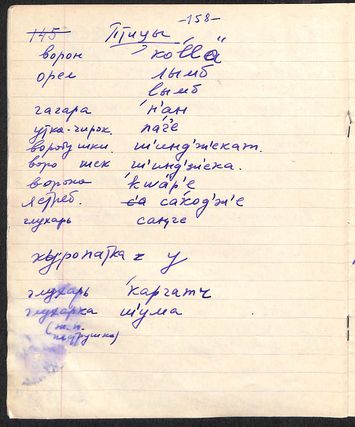 -158-
145 Птицы
ворон ко́ԓԓӓ
орел лымб
вымб
гагара н'ан
утка-чирок. па́г'е
воробушки. ш'инд'ж'екат.
воро шек ш'инд'ж'ека.
ворона кша́р'е
ястреб. са сакод'ж'е
глухарь саӈге
куропатка
глухарь каргатч
глухарка ш'ума